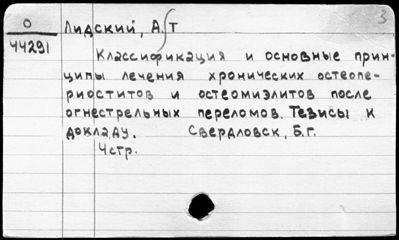 О Лидский, А. Т 3
44291
Классификация и основные прин-
ципы лечения хронических остеопе-
риоститов и остеомиэлитов после
огнестрельных переломов. Тезисы к
докладу. Свердловск, Б.г.
4стр.